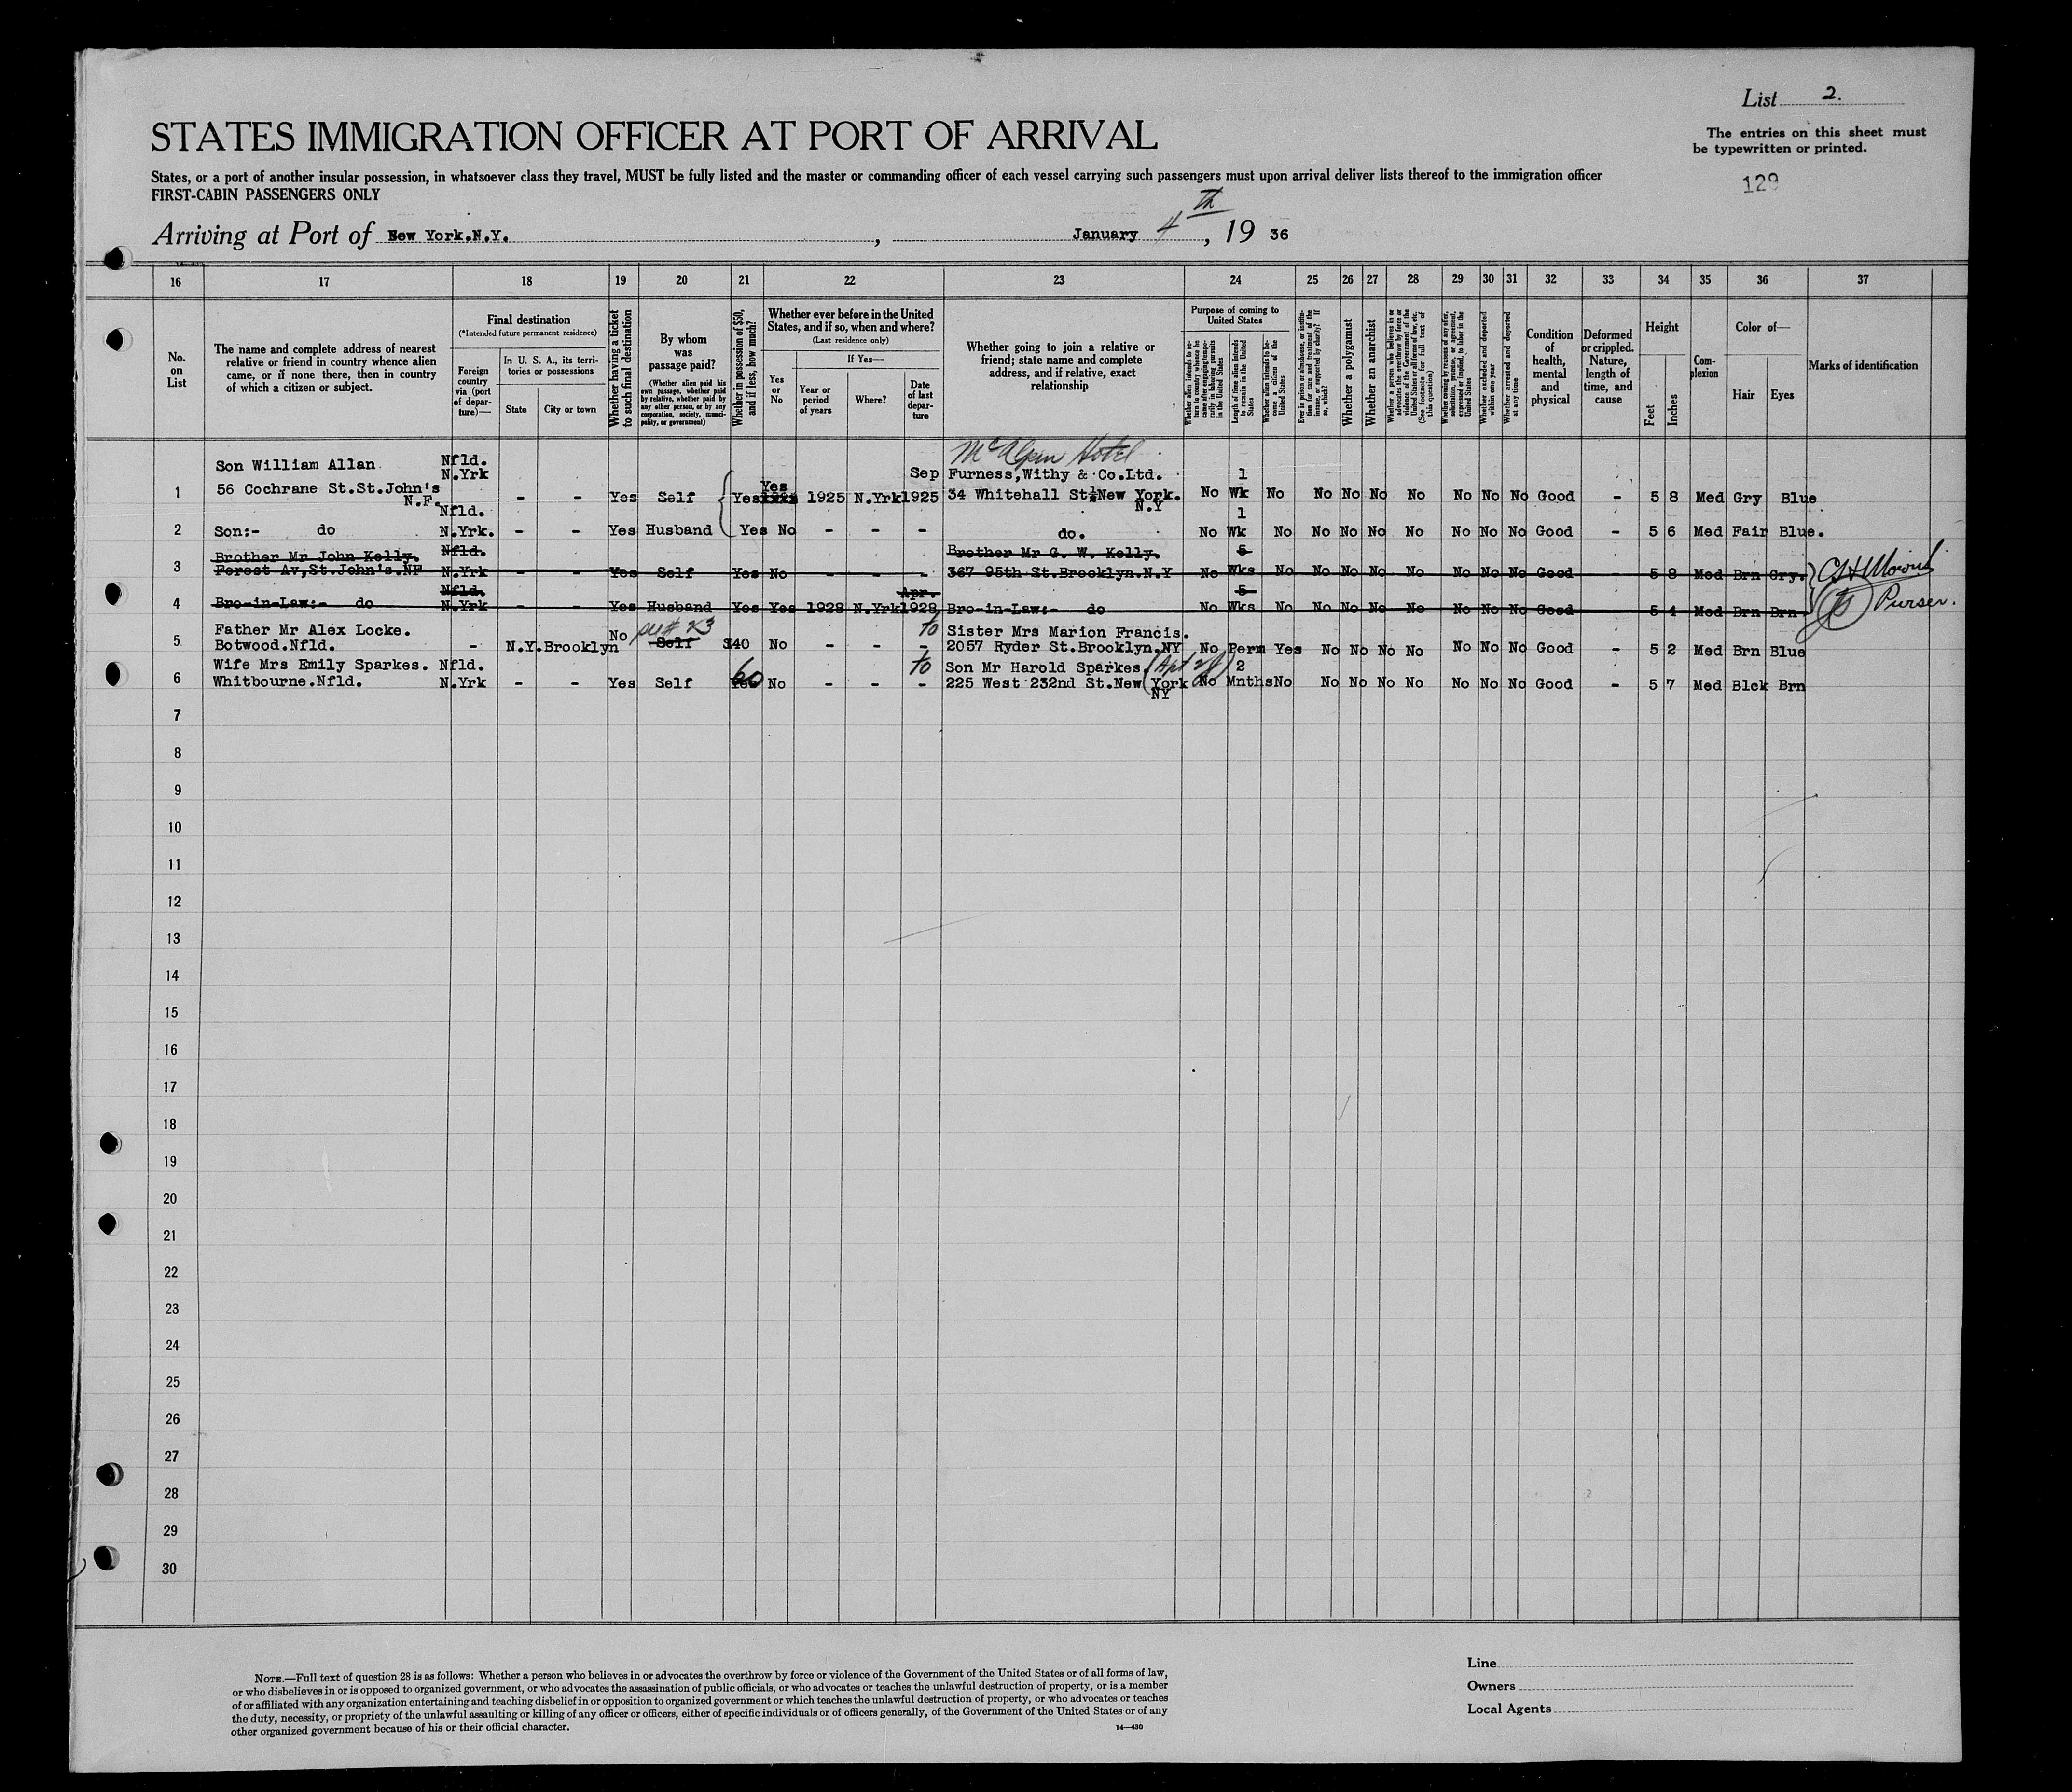 List 2.
STATES IMMIGRATION OFFICER AT PORT OF ARRIVAL
The entries on this sheet must
be typewritten or printed.
States, or a port of another insular possession, in whatsoever class they travel, MUST be fully listed and the master or commanding officer of each vessel carrying such passengers must upon arrival deliver lists thereof to the immigration officer
FIRST-CABIN PASSENGERS ONLY
129
Arriving at Port of New York.N.Y. , January 4th , 19 36
16 17 18 19 20 21 22 23 24 25 26 27 28 29 30 31 32 33 34 35 36 37
No. on List
The name and complete address of nearest
relative or friend in country whence alien
came, or if none there, then in country
of which a citizen or subject.
Final destination
(*Intended future permanent residence)
Foreign country via (port of departure)—
In U. S. A., its territories or possessions
State
City or town
Whether having a ticket to such final destination
By whom was passage paid?
(Whether alien paid his own passage, whether paid by relative, whether paid by any other person, or by any corporation, society, municipality, or government)
Whether in possession of $50, and if less, how much?
Whether ever before in the United States, and if so, when and where?
(Last residence only)
Yes or No
If Yes—
Year or period of years
Where?
Date of last departure
Whether going to join a relative or
friend; state name and complete
address, and if relative, exact
relationship
Purpose of coming to United States
Length of time alien intends to remain in the United States
Whether alien intends to become a citizen of the United States
Whether a polygamist
Whether an anarchist
(See footnote for full text of this question)
Whether excluded and deported within one year
Whether arrested and deported at any time
Condition of health, mental and physical
Deformed or crippled. Nature, length of time, and cause
Height
Feet
Inches
Complexion
Color of—
Hair
Eyes
Marks of identification
McAlpin Hotel
Son William Allan Nfld.
N.Yrk Sep Furness,Withy & Co.Ltd. 1
1 56 Cochrane St.St.John's N.F. - - Yes Self Yes Yes 1925 N.Yrk 1925 34 Whitehall St New York. N.Y No Wk No No No No No No No No Good - 5 8 Med Gry Blue
Nfld. 1
2 Son:- do N.Yrk. - - Yes Husband Yes No - - - do. No Wk No No No No No No No No Good - 5 6 Med Fair Blue.
Brother Mr John Kelly. Nfld. Brother Mr G. W. Kelly. 5
3 Forest Av,St.John's.NF N.Yrk - - Yes Self Yes No - - - 367 95th St.Brooklyn.N.Y No Wks No No No No No No No No Good - 5 8 Med Brn Gry.
Nfld. Apr. 5
4 Bro-in-Law:- do N.Yrk - - Yes Husband Yes Yes 1928 N.Yrk 1928 Bro-in-Law:- do No Wks No No No No No No No No Good - 5 4 Med Brn Brn
Purser.
Father Mr Alex Locke. to Sister Mrs Marion Francis.
5 Botwood.Nfld. - N.Y. Brooklyn No Self $40 No - - - 2057 Ryder St.Brooklyn.NY No Perm Yes No No No No No No No Good - 5 2 Med Brn Blue
Wife Mrs Emily Sparkes. Nfld. to Son Mr Harold Sparkes. 2
6 Whitbourne.Nfld. N.Yrk - - Yes Self 60 Yes No - - - 225 West 232nd St.New York NY No Mnths No No No No No No No No Good - 5 7 Med Blck Brn
7
8
9
10
11
12
13
14
15
16
17
18
19
20
21
22
23
24
25
26
27
28
29
30
NOTE.—Full text of question 28 is as follows: Whether a person who believes in or advocates the overthrow by force or violence of the Government of the United States or of all forms of law,
or who disbelieves in or is opposed to organized government, or who advocates the assassination of public officials, or who advocates or teaches the unlawful destruction of property, or is a member
of or affiliated with any organization entertaining and teaching disbelief in or opposition to organized government or which teaches the unlawful destruction of property, or who advocates or teaches
the duty, necessity, or propriety of the unlawful assaulting or killing of any officer or officers, either of specific individuals or of officers generally, of the Government of the United States or of any
other organized government because of his or their official character.
14—430
Line
Owners
Local Agents